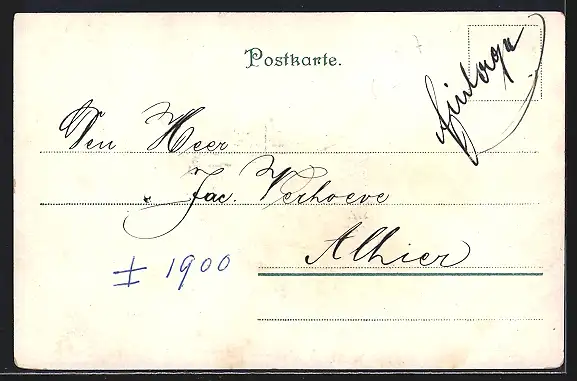 Postkarte.
Den Heer
Jac. Verhoeve
Alhier
± 1900